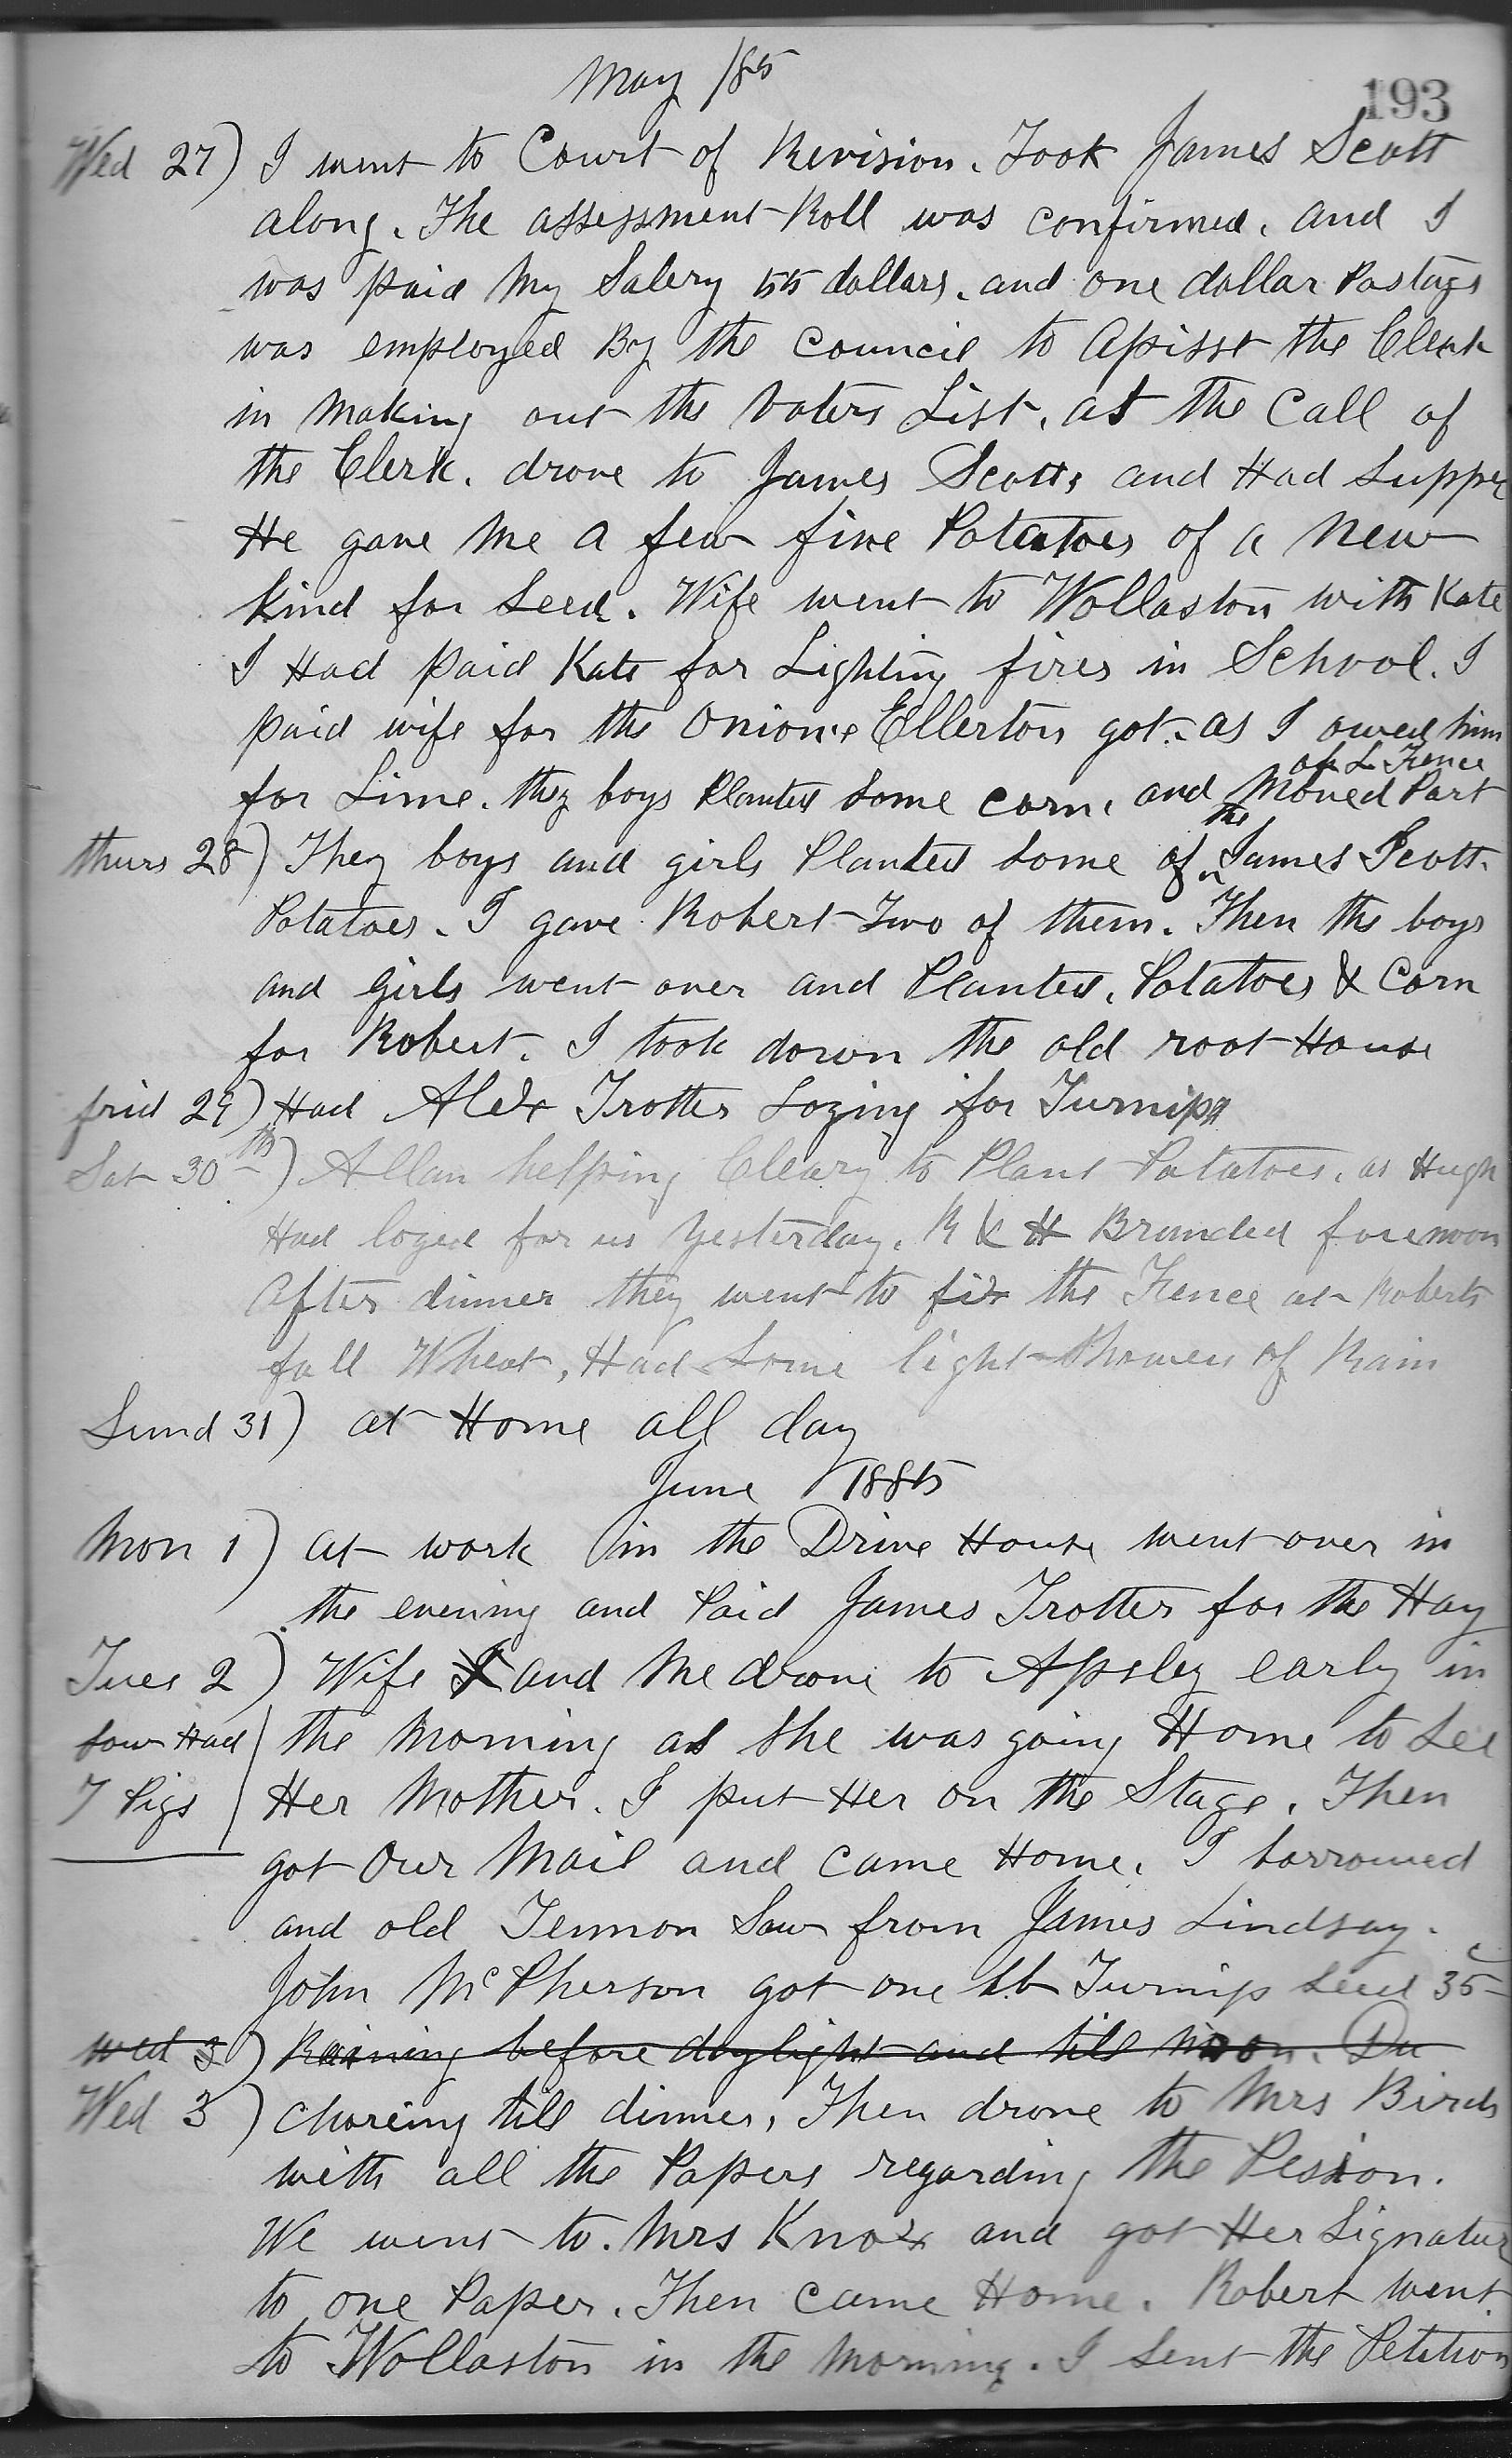 May /85
193
Wed 27) I went to Court of Revision. Took James Scott
along. The assessment Roll was confirmed. and I
was paid my Salery 55 dollars. and one dollar Postage
was employed By the Council to Assist the Clerk
in making out the Voters List. at the Call of
the Clerk. drove to James Scotts and Had Supper
He gave me a few fine Potatoes of a New
Kind for Seed. Wife went to Wollaston with Kate
I Had paid Kate for Lighting fires in School. I
paid wife for the Onions Ellerton got. as I owed him
for Lime. they boys Planted Some corn. and Moved Part
of L Fence
Thurs 28) They boys and girls Planted Some of the James Scott
Potatoes. I gave Robert Two of them. Then the boys
and girls went over and Planted. Potatoes & Corn
for Robert. I took down the old root House
frid 29) Had Alex Trotter Loging for Turnips
Sat 30th) Allan helping Cleary to Plant Potatoes. as Hugh
Had loged for us Yesterday. R & H Branded forenoon
After dinner they went to fix the Fence at Roberts
fall Wheat. Had Some light Showers of Rain
Sund 31) at Home all day
June /1885
Mon 1) at work in the Drive House went over in
the evening and Paid James Trotter for the Hay
Tues 2) Wife & and Me drove to Apsley early in
Sow Had
the Morning as She was going Home to See
7 Pigs
Her Mother. I put Her on the Stage. Then
got Our Mail and came Home. I borrowed
and old Tennon Saw from James Lindsay.
John McPherson got one Lb Turnip Seed 35c
Wed 3) Raining before daylight and till Noon. Du
Wed 3) Choreing till dinner. Then drove to Mrs Birds
with all the Papers regarding the Pesion.
We went to. Mrs Knox and got Her Signatur
to one Paper. Then came Home. Robert went
to Wollaston in the Morning. I Sent the Petition